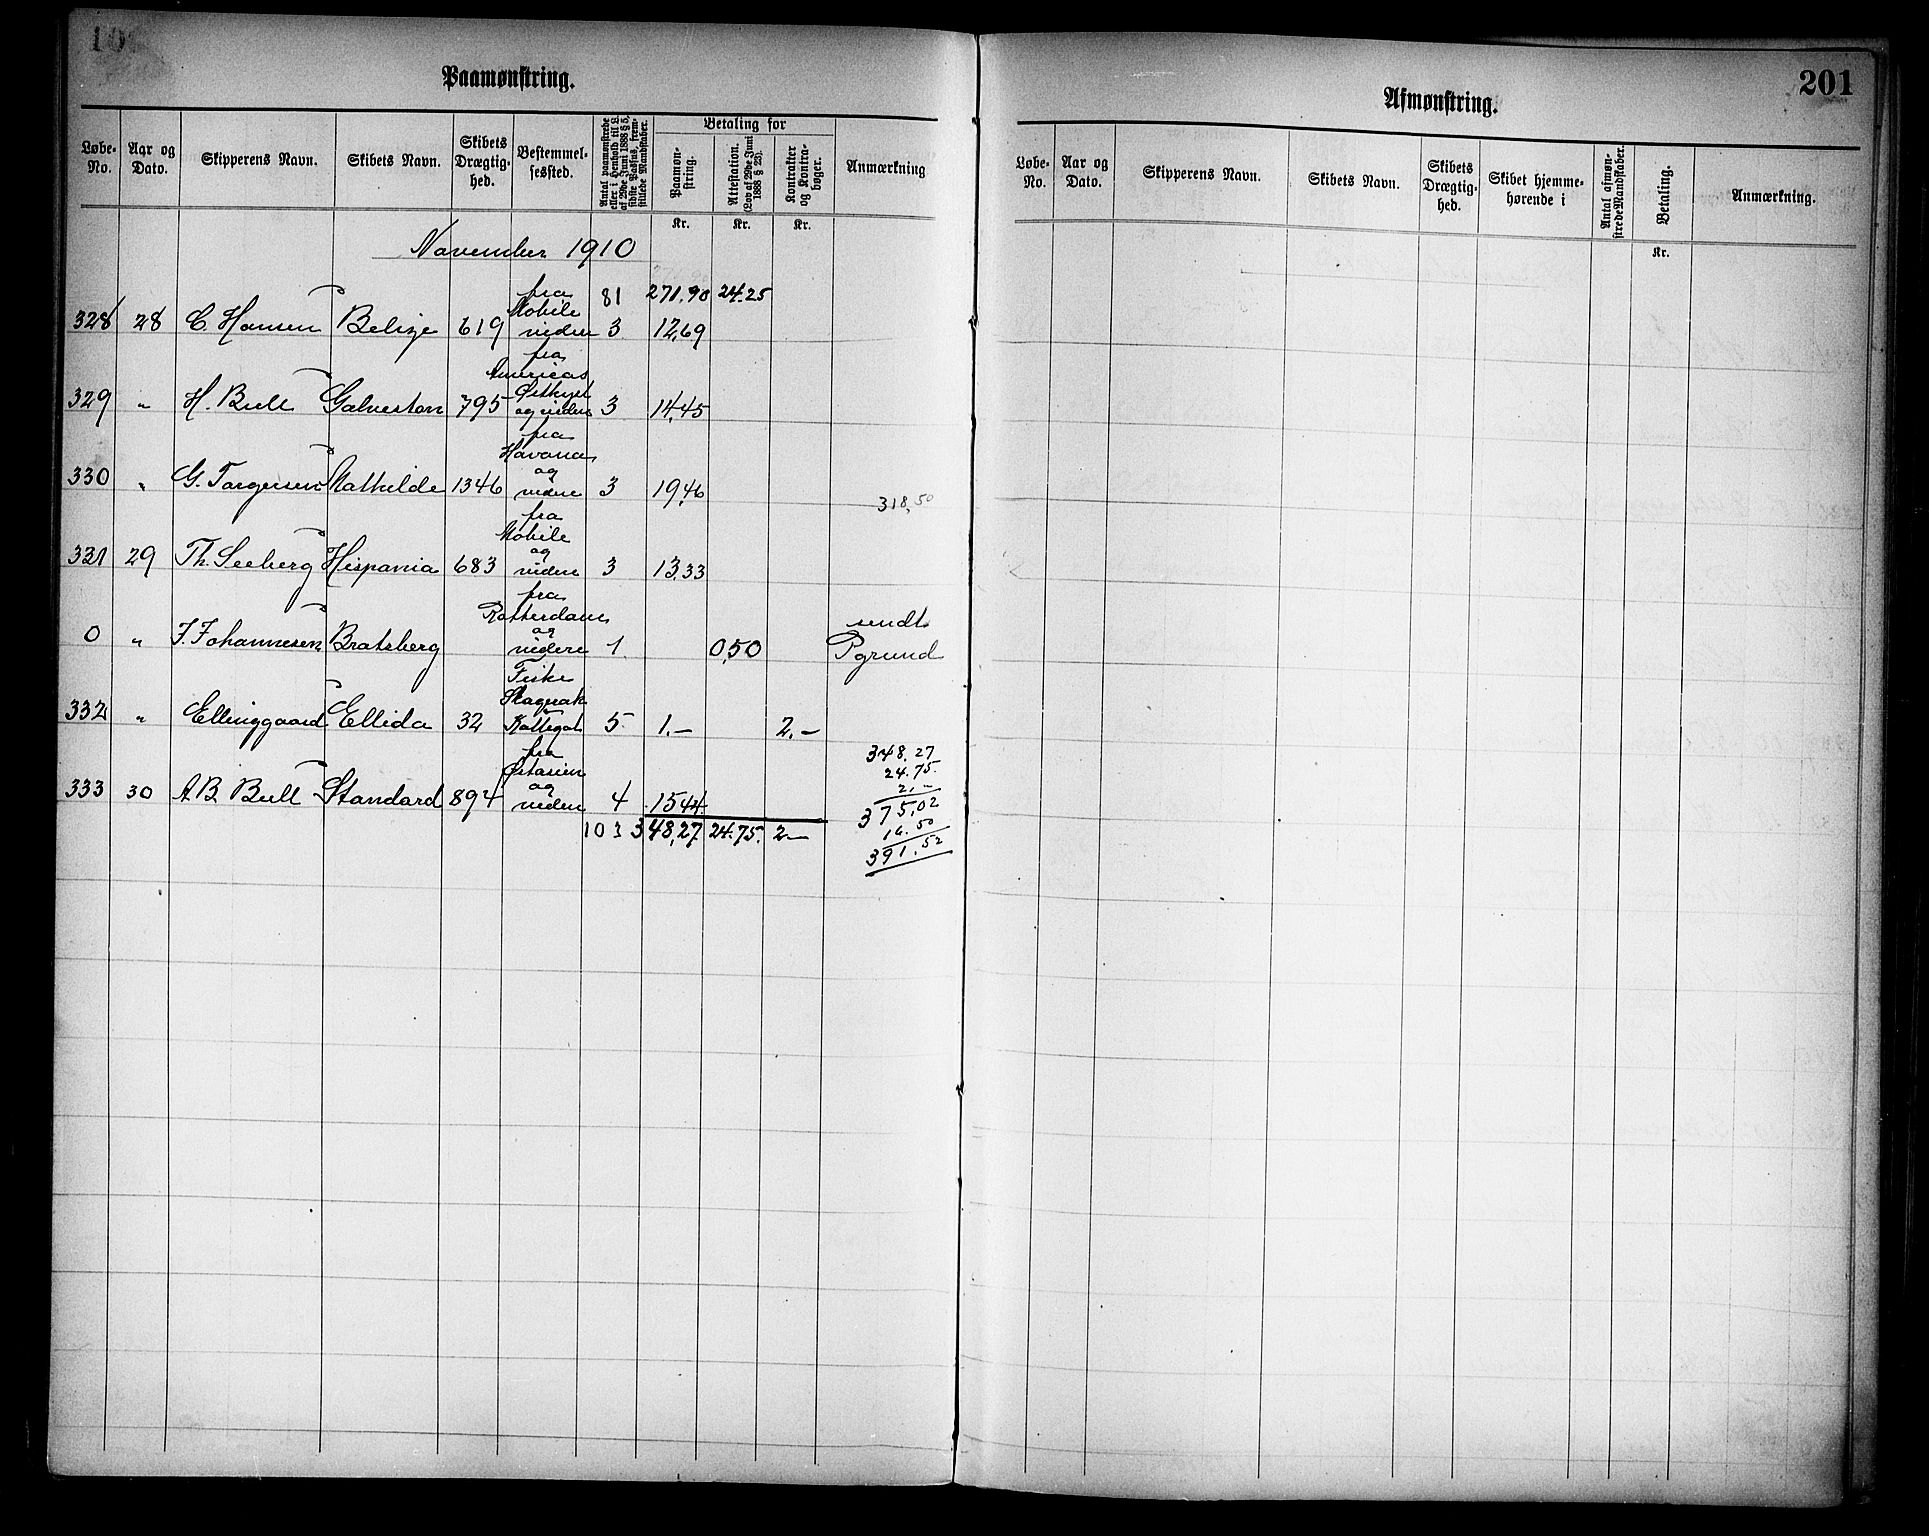 Paamønstring.
Løbe-No. Aar og Dato. Skipperens Navn. Skibets Navn. Skibets Drægtig-hed. Bestemmel-sessted. Antal paamønstrede eller i Henhold til L. af 29de Juni 1888 § 5, sidste Passus, frem-stillede Mandskaber. Betaling for Paamøn-string. Attestation. (Lov af 29de Juni 1888 § 23). Kontrakter og Kontra-bøger. Anmærkning
Kr. Kr. Kr.
November 1910
81 271,90 24.25
328 28 C. Hansen Belize 619 fra Mobile videre 3 12,69
329 " H. Bull Galveston 795 fra Americas Østkyst og videre 3 14,45
330 " G. Torgersen Mathilde 1346 fra Havana og videre 3 19,46
318,50
331 29 Th. Seeberg Hispania 683 fra Mobile og videre 3 13,33
0 " J. Johannesen Bratsberg fra Rotterdam og videre 1 0,50 sendt Pgrund
332 " Ellinggaard Ellida 32 Fiske Skagerak Kattegat 5 1.— 2.—
333 30 A B Bull Standard 894 fra Østasien og videre 4 15 44
103 348,27 24.75. 2.—
348,27
24.75.
2,—
375,02
16.50
391.52
201
Afmønstring.
Løbe-No. Aar og Dato. Skipperens Navn. Skibets Navn. Skibets Drægtig-hed. Skibet hjemme-hørende i Antal afmøn-strede Mandskaber. Betaling. Anmærkning.
Kr.